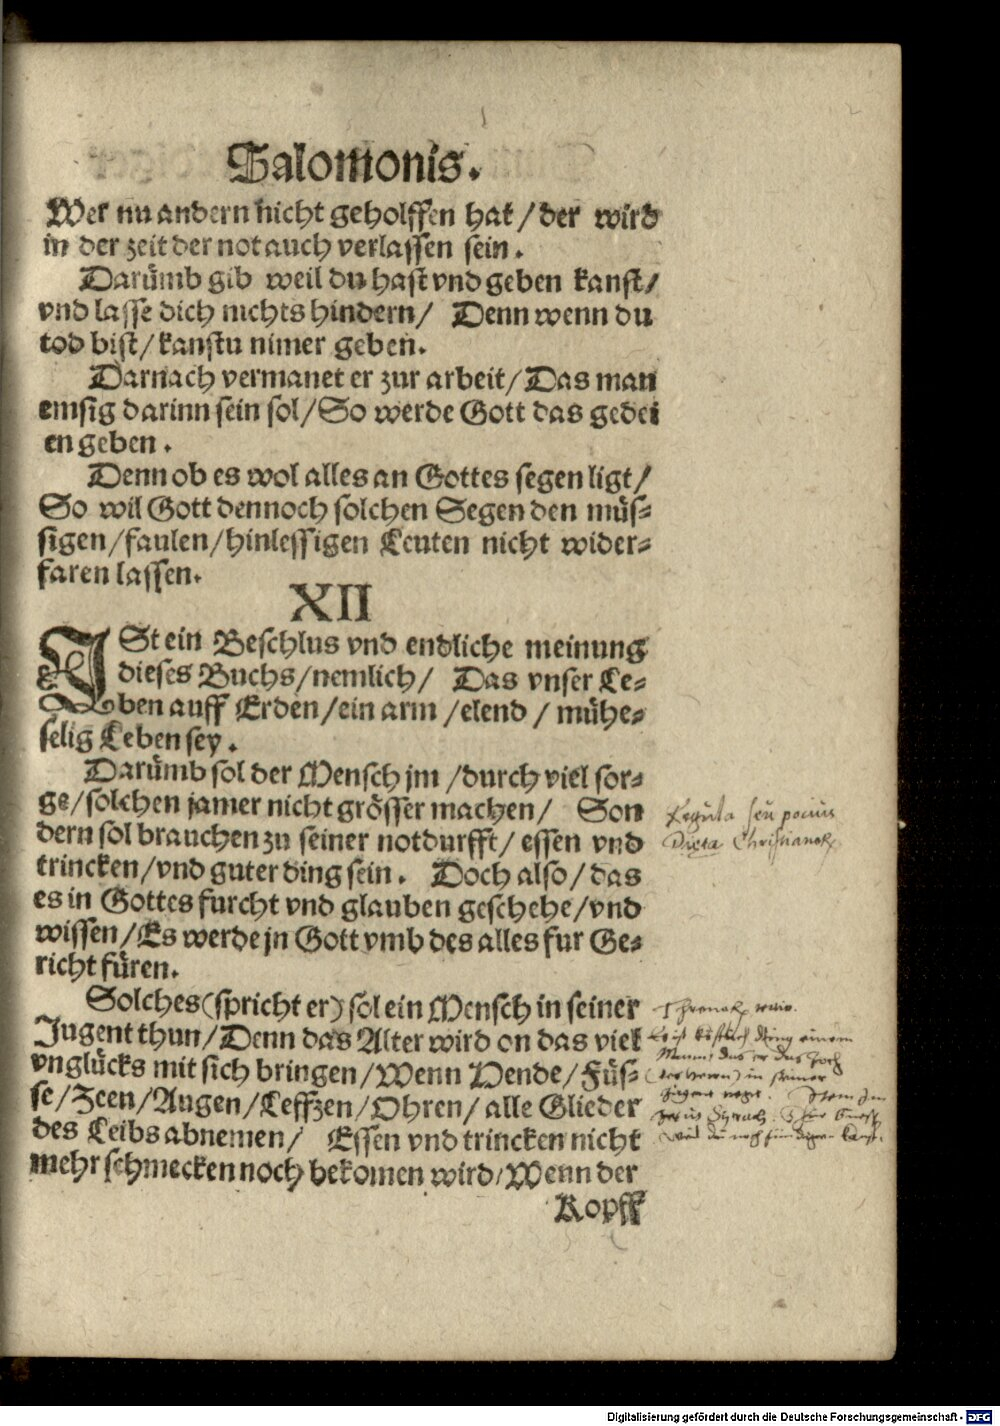 Salomonis.
Wer nu andern nicht geholffen hat / der wird
in der zeit der not auch verlassen sein.
Darümb gib weil du hast vnd geben kanst /
vnd lasse dich nichts hindern / Denn wenn du
tod bist / kanstu nimer geben.
Darnach vermanet er zur arbeit / Das man
emsig darinn sein sol / So werde Gott das gedei
en geben.
Denn ob es wol alles an Gottes segen ligt /
So wil Gott dennoch solchen Segen den müs⸗
sigen / faulen / hinlessigen Leuten nicht wider⸗
faren lassen.
XII
ISt ein Beschlus vnd endliche meinung
dieses Buchs / nemlich / Das vnser Le⸗
ben auff Erden / ein arm / elend / mühe⸗
selig Leben sey.
Darümb sol der Mensch jm / durch viel sor⸗
ge / solchen jamer nicht grösser machen / Son
dern sol brauchen zu seiner notdurfft / essen vnd
trincken / vnd guter ding sein. Doch also / das
es in Gottes furcht vnd glauben geschehe / vnd
wissen / Es werde jn Gott vmb des alles fur Ge⸗
richt füren.
Regula seu pocius
Christianoꝝ
Solches (spricht er) sol ein Mensch in seiner
Jugent thun / Denn das Alter wird on das viel
vnglücks mit sich bringen / Wenn Hende / Füs⸗
se / Zeen / Augen / Leffzen / Ohren / alle Glieder
des Leibs abnemen / Essen vnd trincken nicht
mehr schmecken noch bekomen wird / Wenn der
Kopff
Threnoꝝ
ist köstlich ding einem
Mann, das er das Joch
in seiner
Syrach
Digitalisierung gefördert durch die Deutsche Forschungsgemeinschaft - DFG